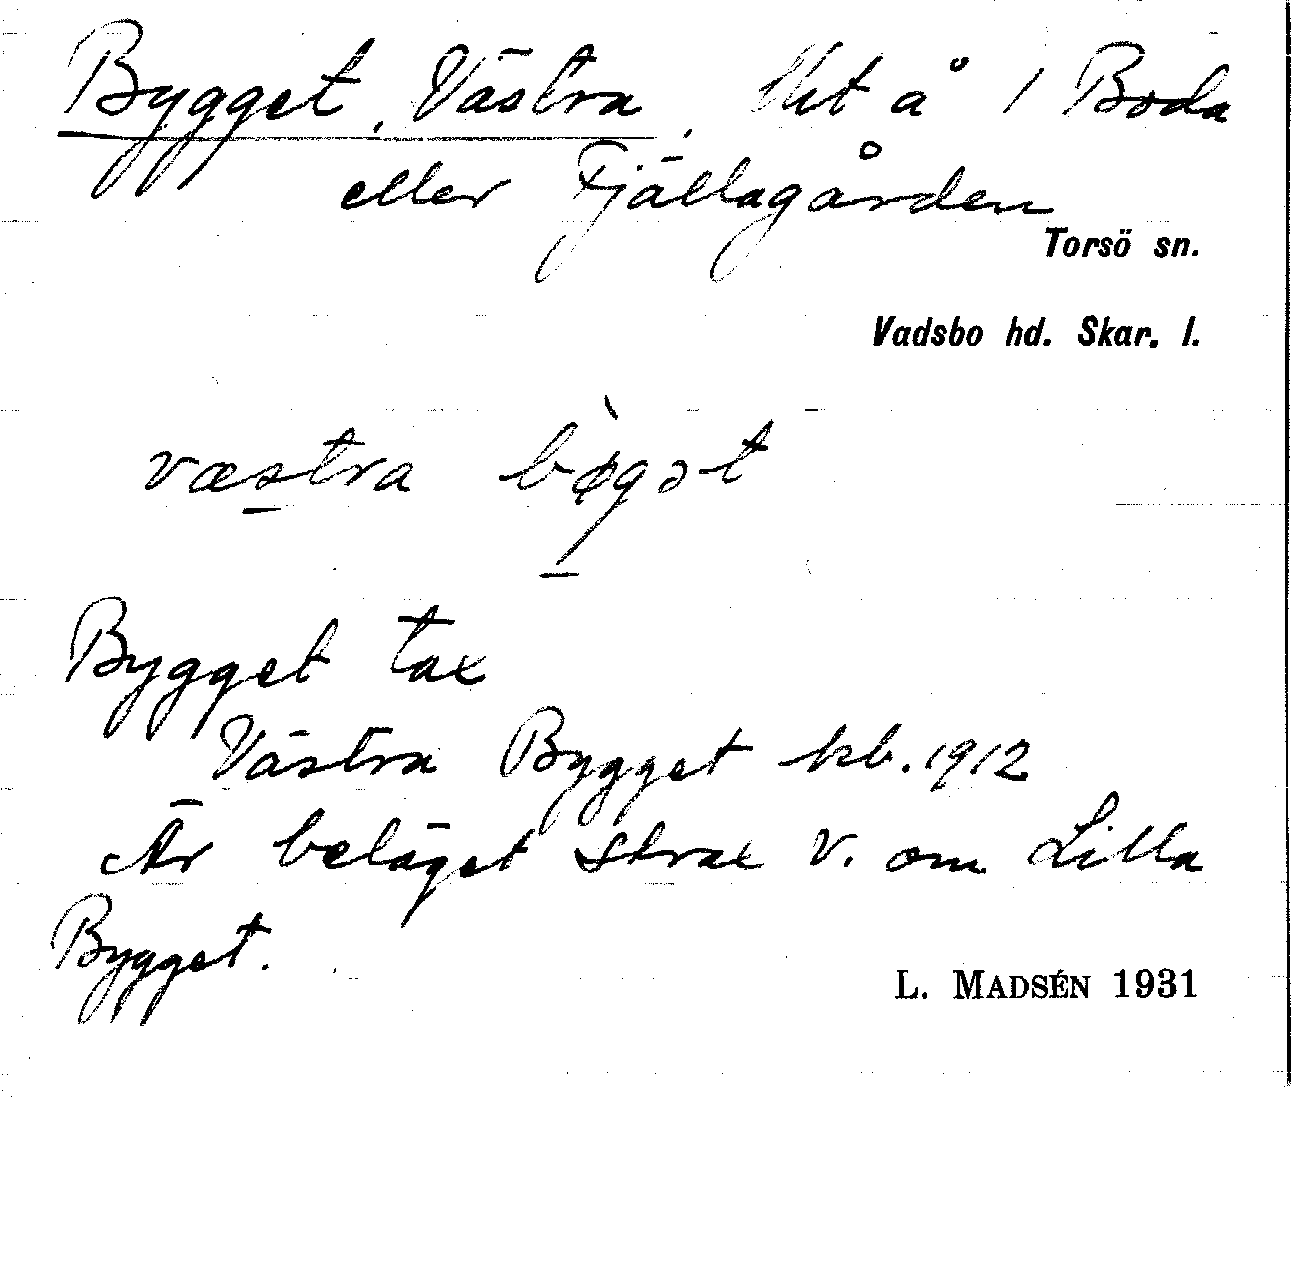 Bygget, Västra. Lht å 1 Boda
eller Fjällagården
Torsö sn.
Vadsbo hd. Skar. l.
væstra bø̀gət
Bygget tax
Västra Bygget kb. 1912
Är beläget strax v. om Lilla
Bygget.
L. MADSÉN 1931